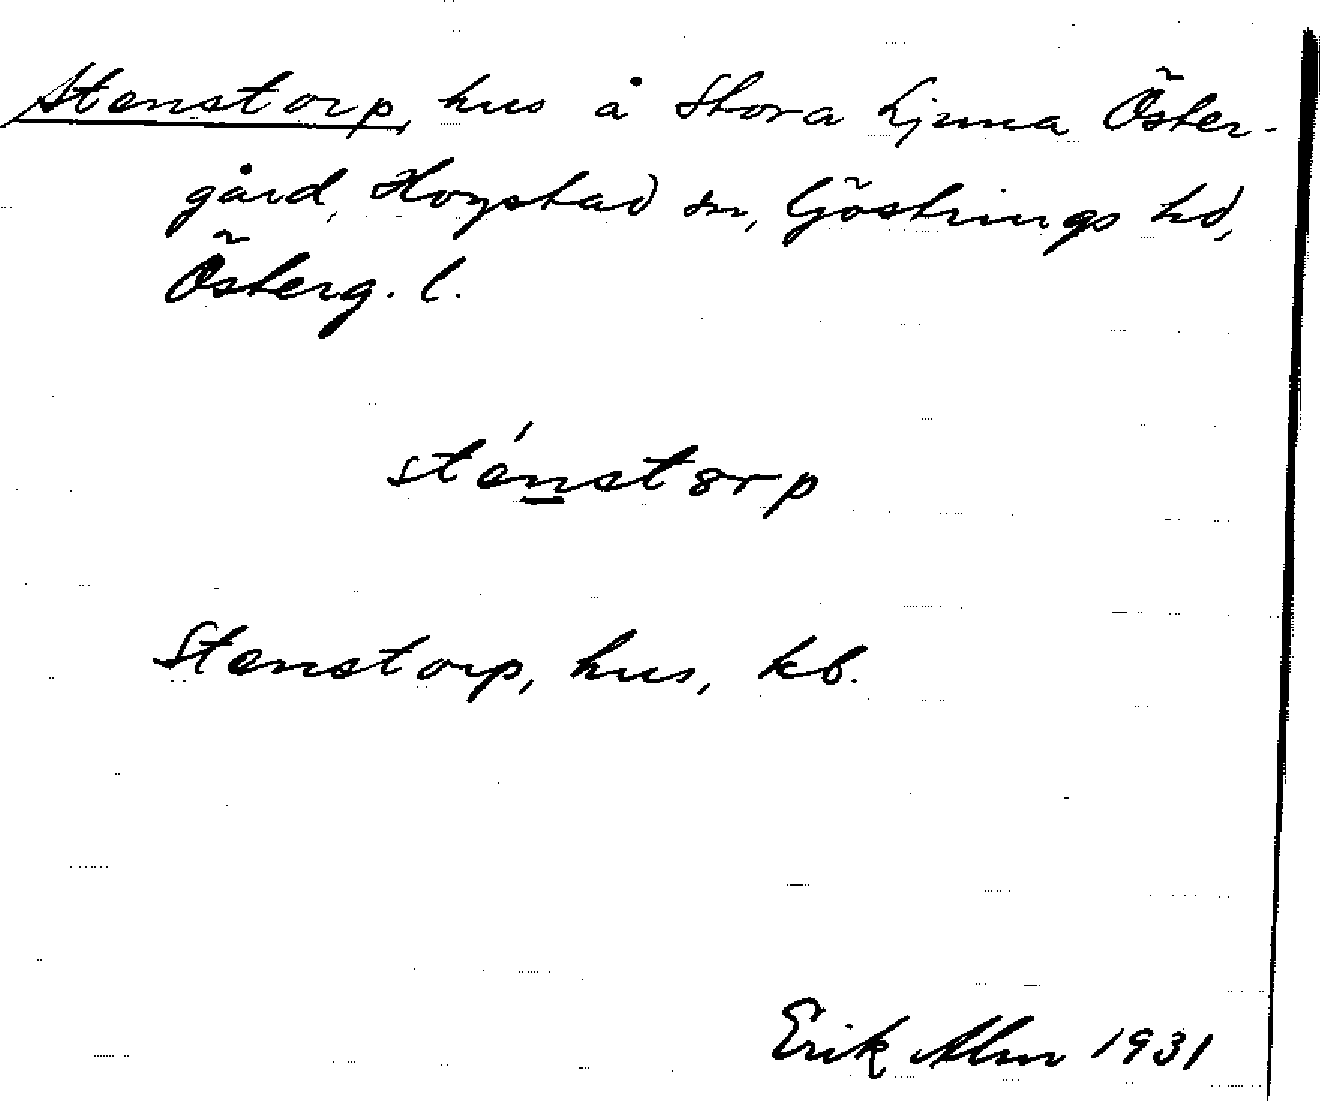 Stenstorp, hus å Stora Ljunna Öster-
gård, Hogstad sn, Göstrings hd,
Österg. l.
sténstorp
Stenstorp, hus, kb.
Erik Alm 1931